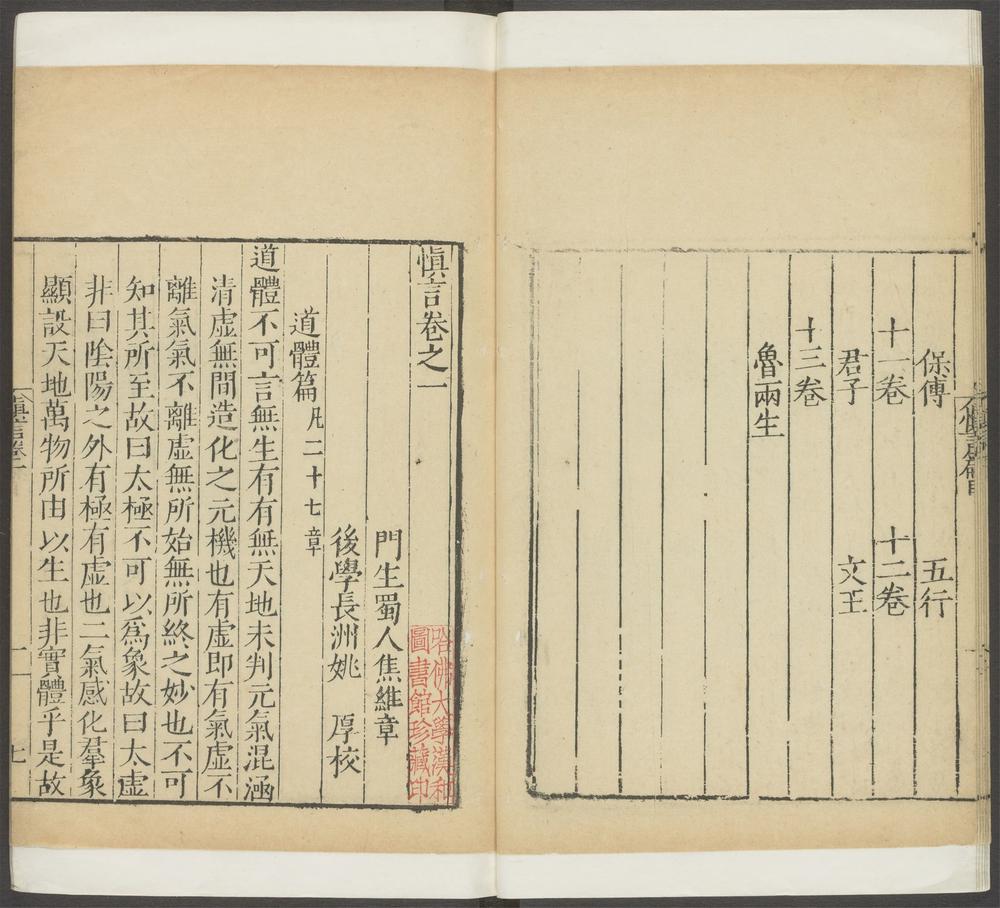 保傅 五行
十一卷 十二卷
君子 文王
十三卷
魯兩生
慎言卷之一
門生蜀人焦維章
後學長洲姚 厚校
道體篇 凡二十七章
道體不可言無生有有無天地未判元氣混涵
清虛無間造化之元機也有虛即有氣虛不
離氣氣不離虛無所始無所終之妙也不可
知其所至故曰太極不可以爲象故曰太虛
非曰陰陽之外有極有虛也二氣感化羣象
顯設天地萬物所由以生也非實體乎是故
哈佛大學漢和
圖書館珍藏印